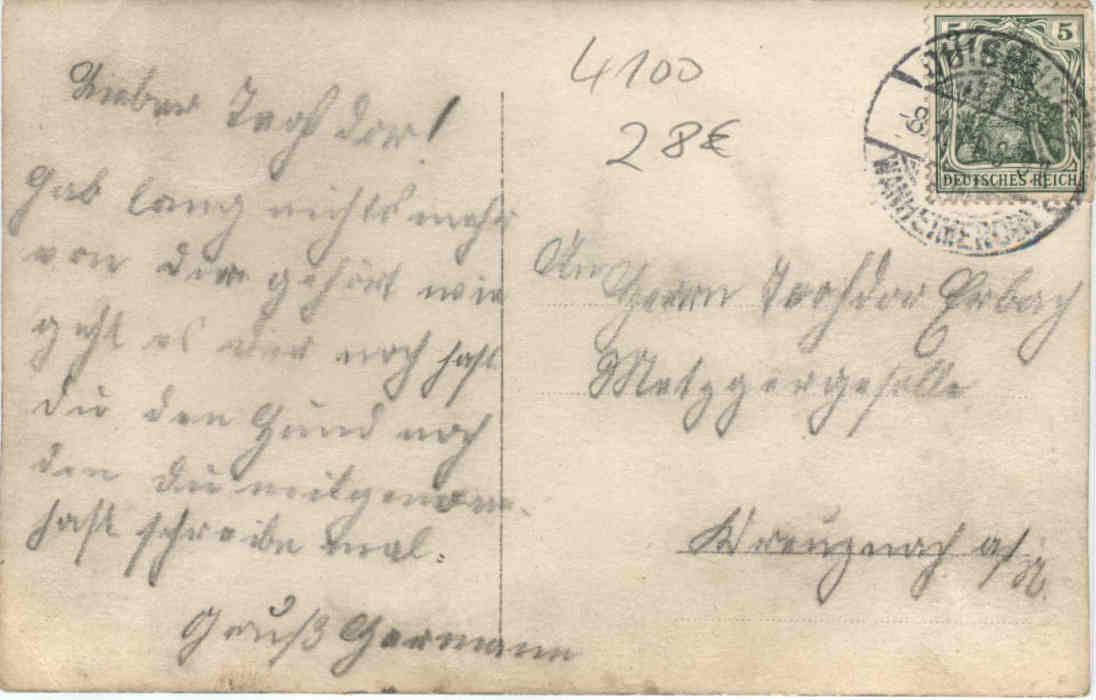 Lieber Teohdor!
Hab lang nichts mehr
von dir gehört wie
geht es dir noch hast
du den Hund noch
den du mitgenom-
hast schreibe mal.
Gruß Hermann
4100
28€
An
Herrn Teohdor Erbach
Metzgergeselle
Kreuznach a/N.
5 5
DEUTSCHES REICH
WANHEIMERORT